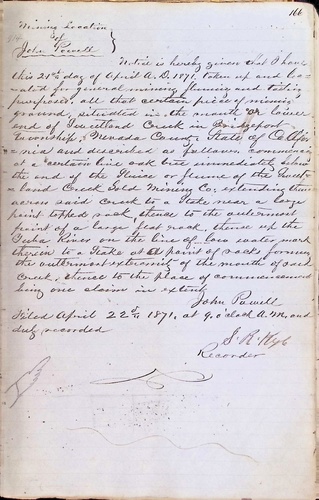 166
Mining Location
of
John Powell
Notice is hereby given that I have
this 21st day of April A.D. 1871, taken up and lo-
cated for general mining fluming and tailing
purposes, all that certain piece of mining
ground, situated in the mouth or lower
end of Sweetland Creek in Bridgeport
Township, Nevada County State of Califor-
nia and described as follows, commencing
at a certain live oak tree immediately below
the end of the Sluice or flume of the Sweet-
land Creek Gold Mining Co; extending thence
across said Creek to a Stake near a large
point topped rock, thence to the outermost
point of a large flat rock, thence up the
Yuba River on the line of low water mark
therein to a Stake at a point of rocks forming
the outermost extremity of the mouth of said
Creek, thence to the place of commencement
being one claim in extent
John Powell
Filed April 22nd 1871, at 9. o'clock A.M. and
duly recorded
Recorder